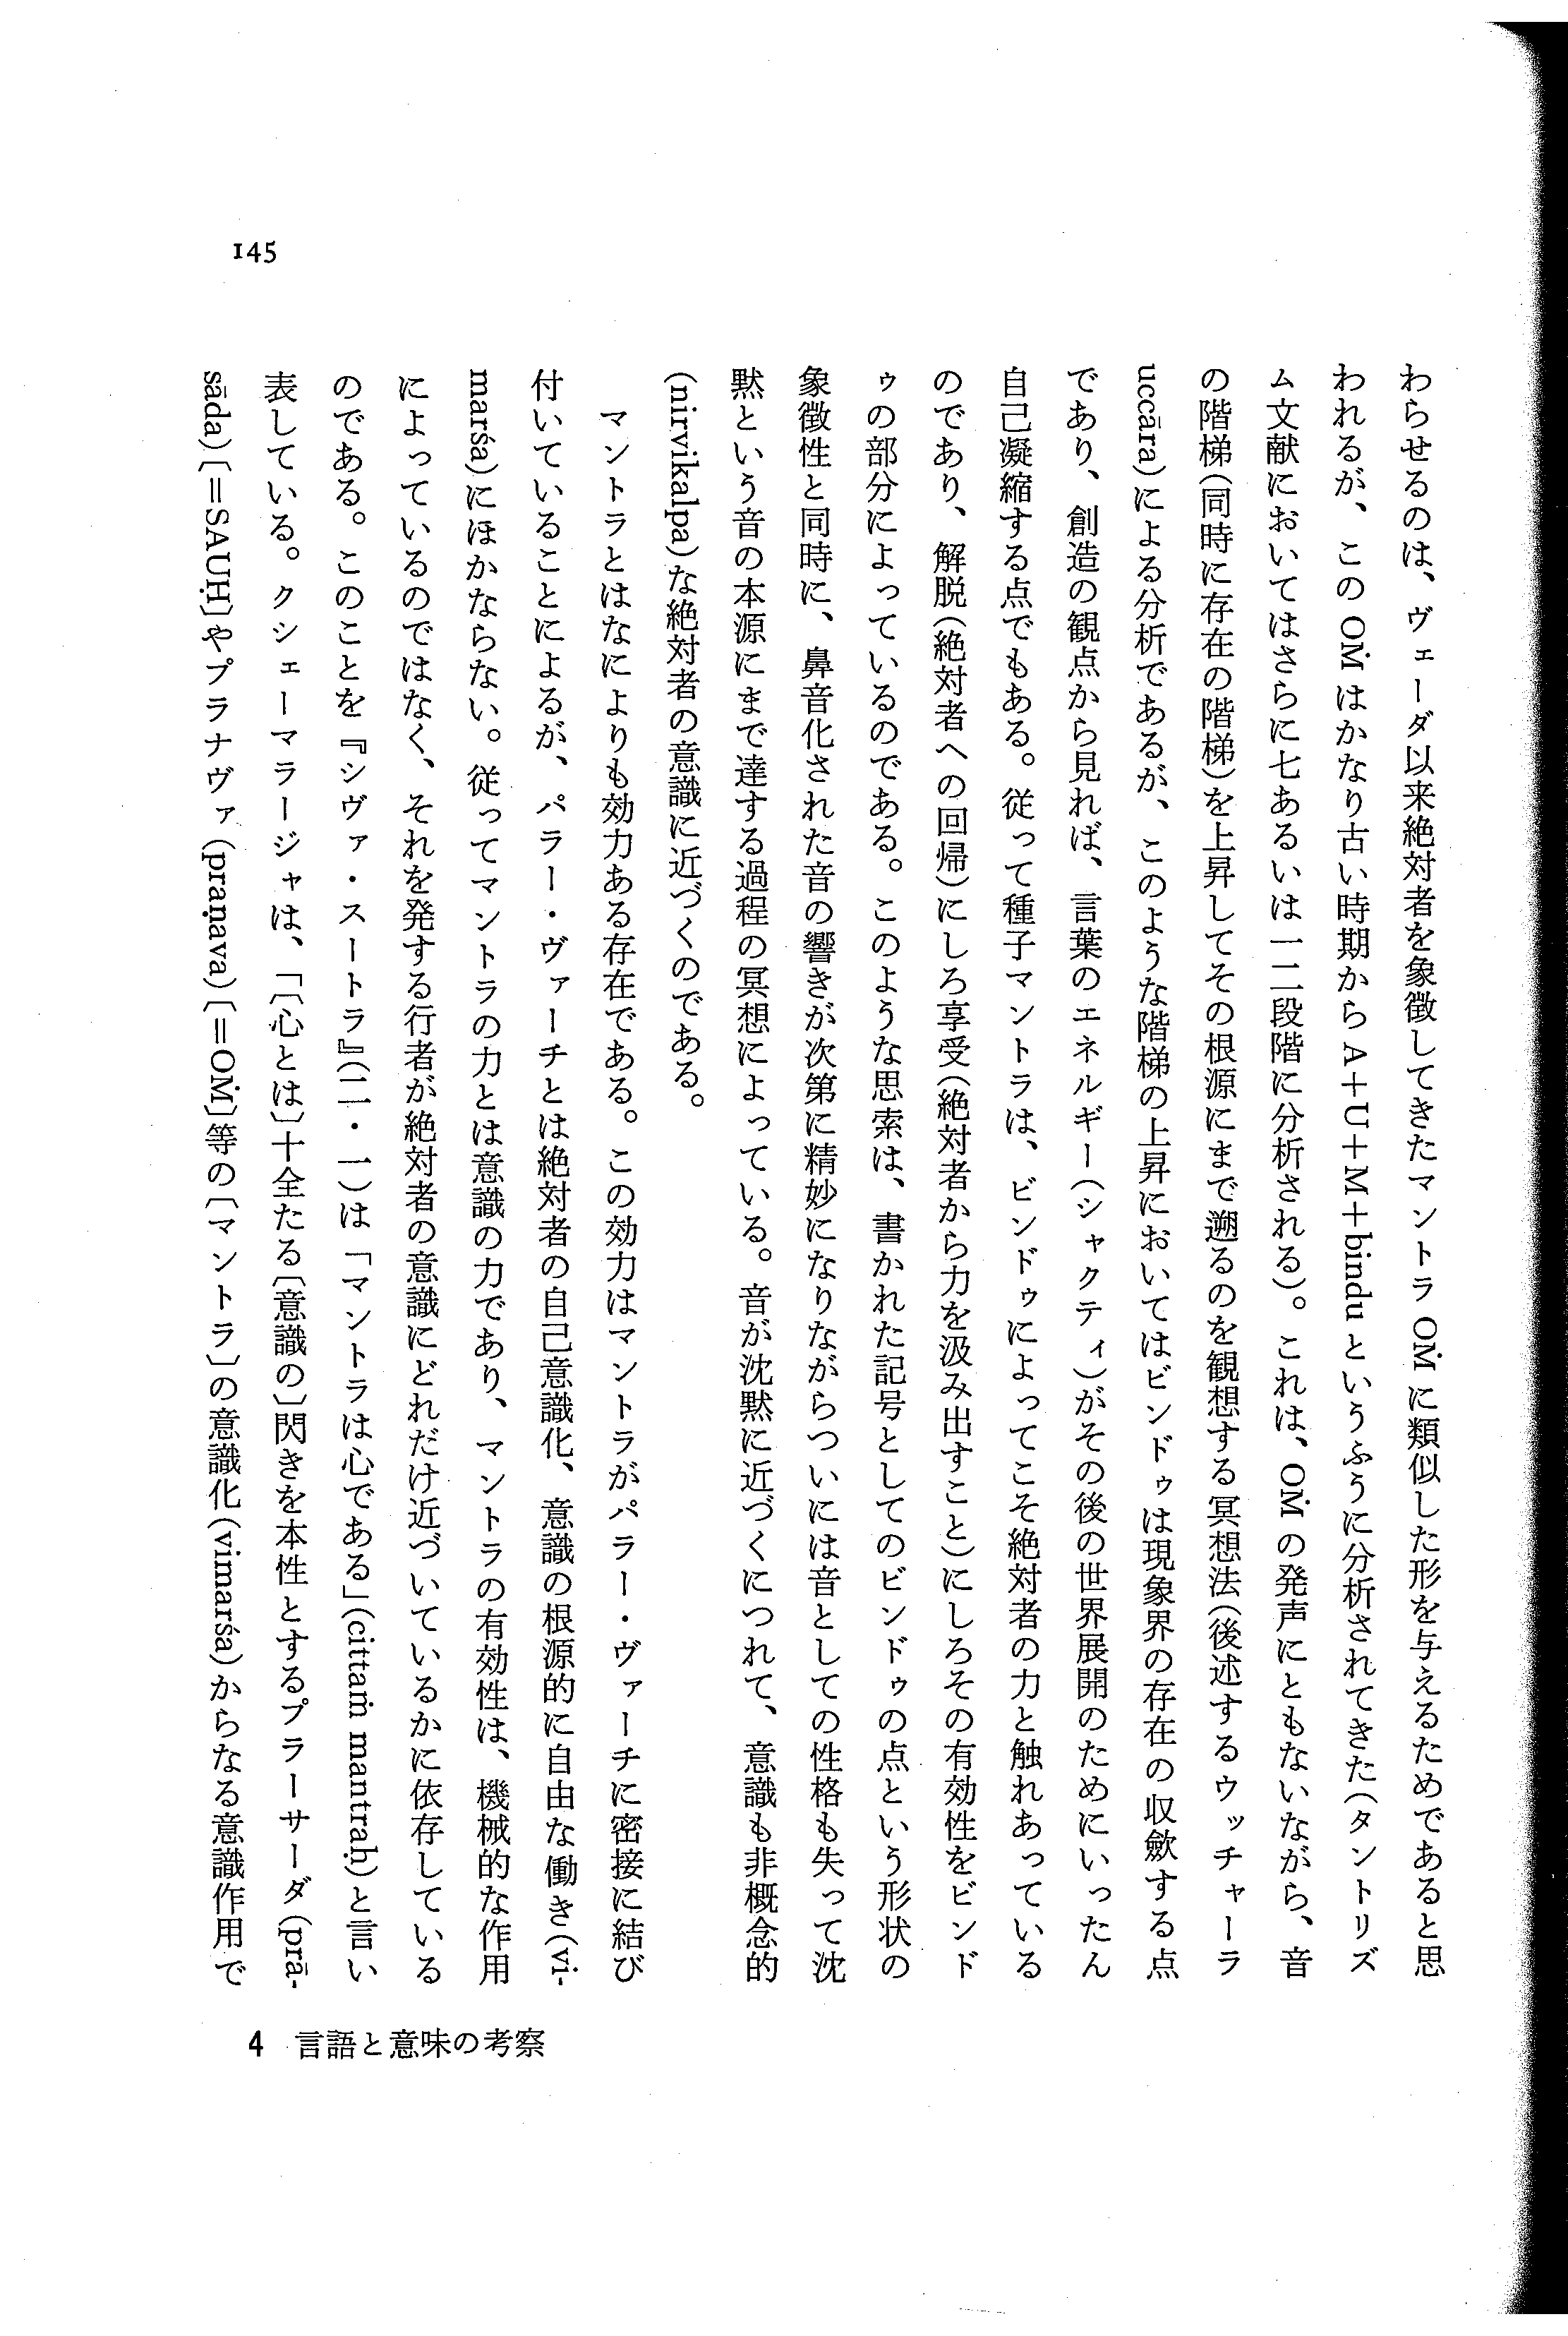 わらせるのは、ヴェーダ以来絶対者を象徴してきたマントラ OṀ に類似した形を与えるためであると思
われるが、この OṀ はかなり古い時期から A＋U＋M＋bindu というふうに分析されてきた（タントリズ
ム文献においてはさらに七あるいは一二段階に分析される）。これは、OṀ の発声にともないながら、音
の階梯（同時に存在の階梯）を上昇してその根源にまで遡るのを観想する冥想法（後述するウッチャーラ
uccāra）による分析であるが、このような階梯の上昇においてはビンドゥは現象界の存在の収斂する点
であり、創造の観点から見れば、言葉のエネルギー（シャクティ）がその後の世界展開のためにいったん
自己凝縮する点でもある。従って種子マントラは、ビンドゥによってこそ絶対者の力と触れあっている
のであり、解脱（絶対者への回帰）にしろ享受（絶対者から力を汲み出すこと）にしろその有効性をビンド
ゥの部分によっているのである。このような思索は、書かれた記号としてのビンドゥの点という形状の
象徴性と同時に、鼻音化された音の響きが次第に精妙になりながらついには音としての性格も失って沈
黙という音の本源にまで達する過程の冥想によっている。音が沈黙に近づくにつれて、意識も非概念的
（nirvikalpa）な絶対者の意識に近づくのである。
マントラとはなによりも効力ある存在である。この効力はマントラがパラー・ヴァーチに密接に結び
付いていることによるが、パラー・ヴァーチとは絶対者の自己意識化、意識の根源的に自由な働き（vi-
marśa）にほかならない。従ってマントラの力とは意識の力であり、マントラの有効性は、機械的な作用
によっているのではなく、それを発する行者が絶対者の意識にどれだけ近づいているかに依存している
のである。このことを『シヴァ・スートラ』（二・一）は「マントラは心である」（cittaṁ mantraḥ）と言い
表している。クシェーマラージャは、「〔心とは〕十全たる〔意識の〕閃きを本性とするプラーサーダ（prā-
sāda）〔＝SAUḤ〕やプラナヴァ（praṇava）〔＝OṀ〕等の〔マントラ〕の意識化（vimarśa）からなる意識作用で
145
4 言語と意味の考察